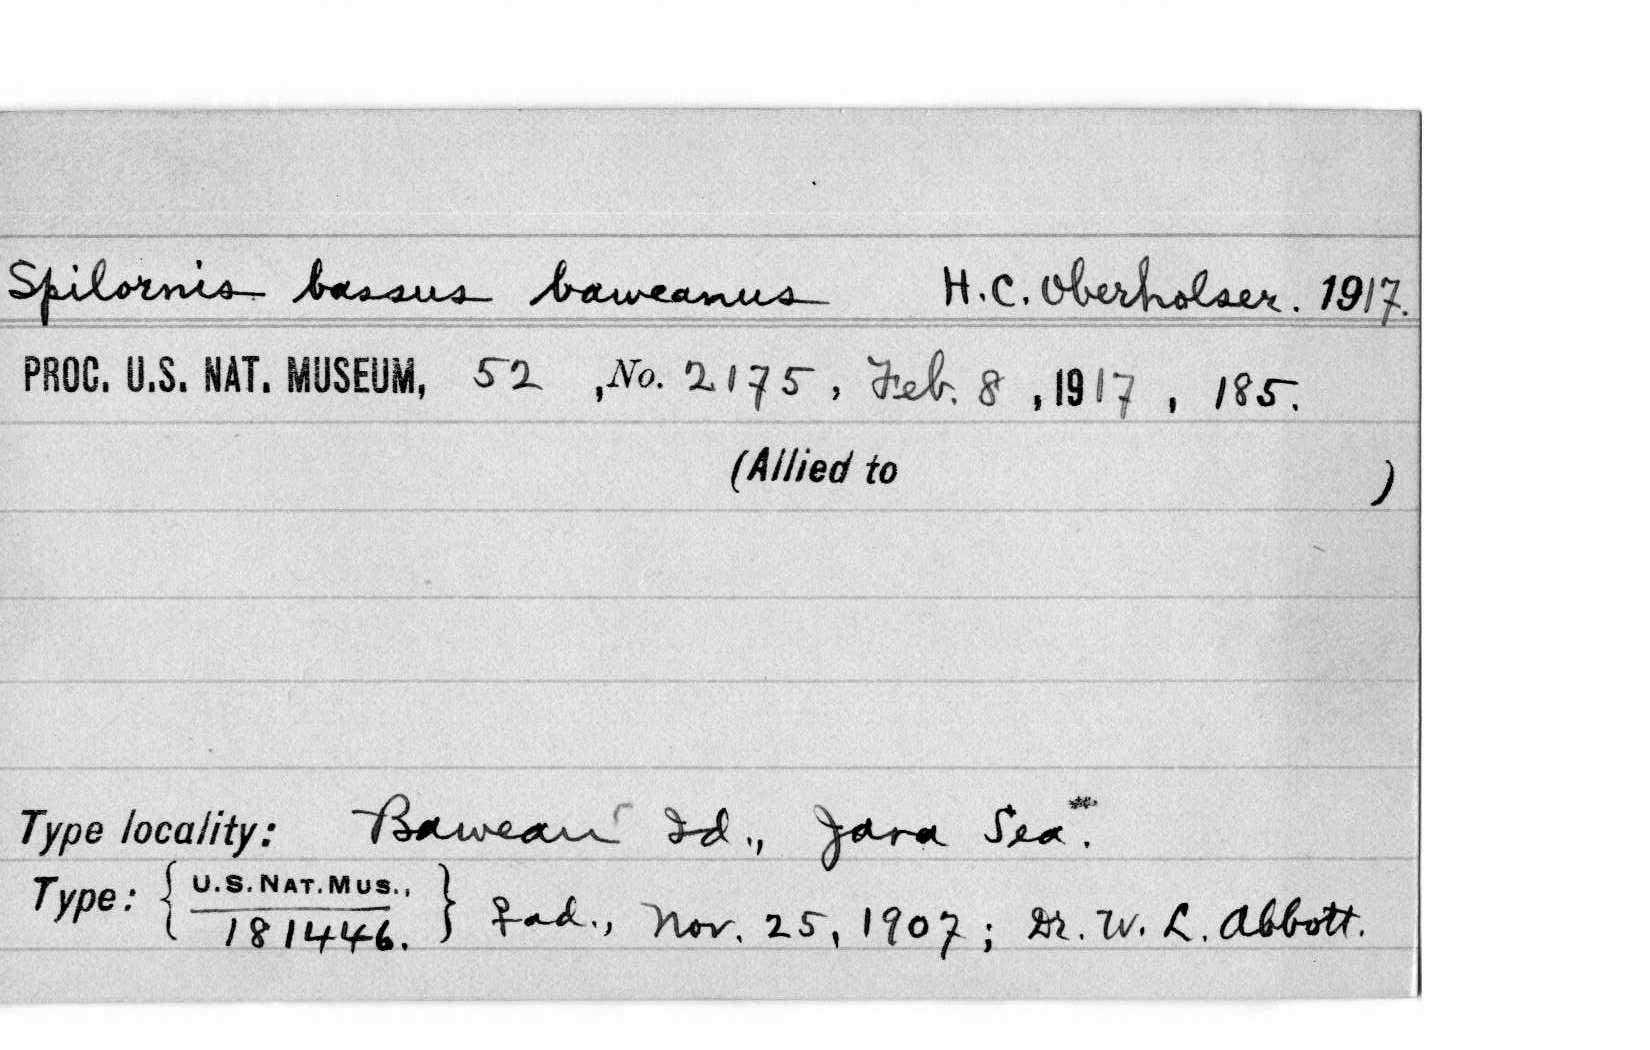 Spilornis bassus baweanus H.C. Oberholser. 1917.
PROC. U.S. NAT. MUSEUM, 52 , No. 2175, Feb. 8, 1917, 185.
(Allied to )
Type locality: Bawean Id., Java Sea.
Type: { U.S. NAT. MUS., } ♀ ad., Nov. 25, 1907; Dr. W. L. Abbott.
181446.